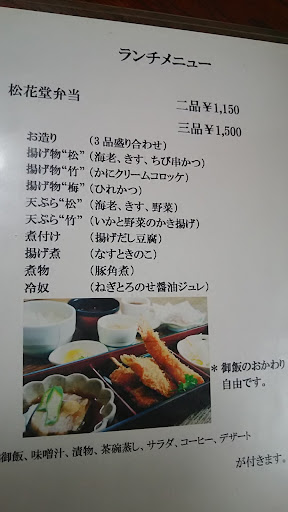 ランチメニュー
松花堂弁当
二品￥1,150
三品￥1,500
お造り （3品盛り合わせ）
揚げ物“松” （海老、きす、ちび串かつ）
揚げ物“竹” （かにクリームコロッケ）
揚げ物“梅” （ひれかつ）
天ぷら“松” （海老、きす、野菜）
天ぷら“竹” （いかと野菜のかき揚げ）
煮付け （揚げだし豆腐）
揚げ煮 （なすときのこ）
煮物 （豚角煮）
冷奴 （ねぎとろのせ醤油ジュレ）
＊御飯のおかわり
自由です。
御飯、味噌汁、漬物、茶碗蒸し、サラダ、コーヒー、デザート
が付きます。